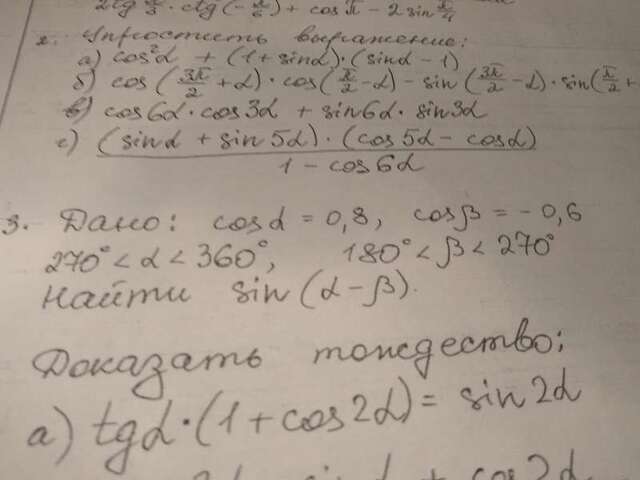 2tg π/3 · ctg(-π/6) + cos π - 2sin π/4
2. Упростить выражение:
а) cos²α + (1 + sinα)·(sinα - 1)
б) cos(3π/2 + α)·cos(π/2 - α) - sin(3π/2 - α)·sin(π/2 +
в) cos6α·cos3α + sin6α·sin3α
с) (sinα + sin5α)·(cos5α - cosα)
1 - cos6α
3. Дано: cosα = 0,8, cosβ = -0,6
270° < α < 360°, 180° < β < 270°
Найти sin(α - β).
Доказать тождество:
а) tgα·(1 + cos2α) = sin2α